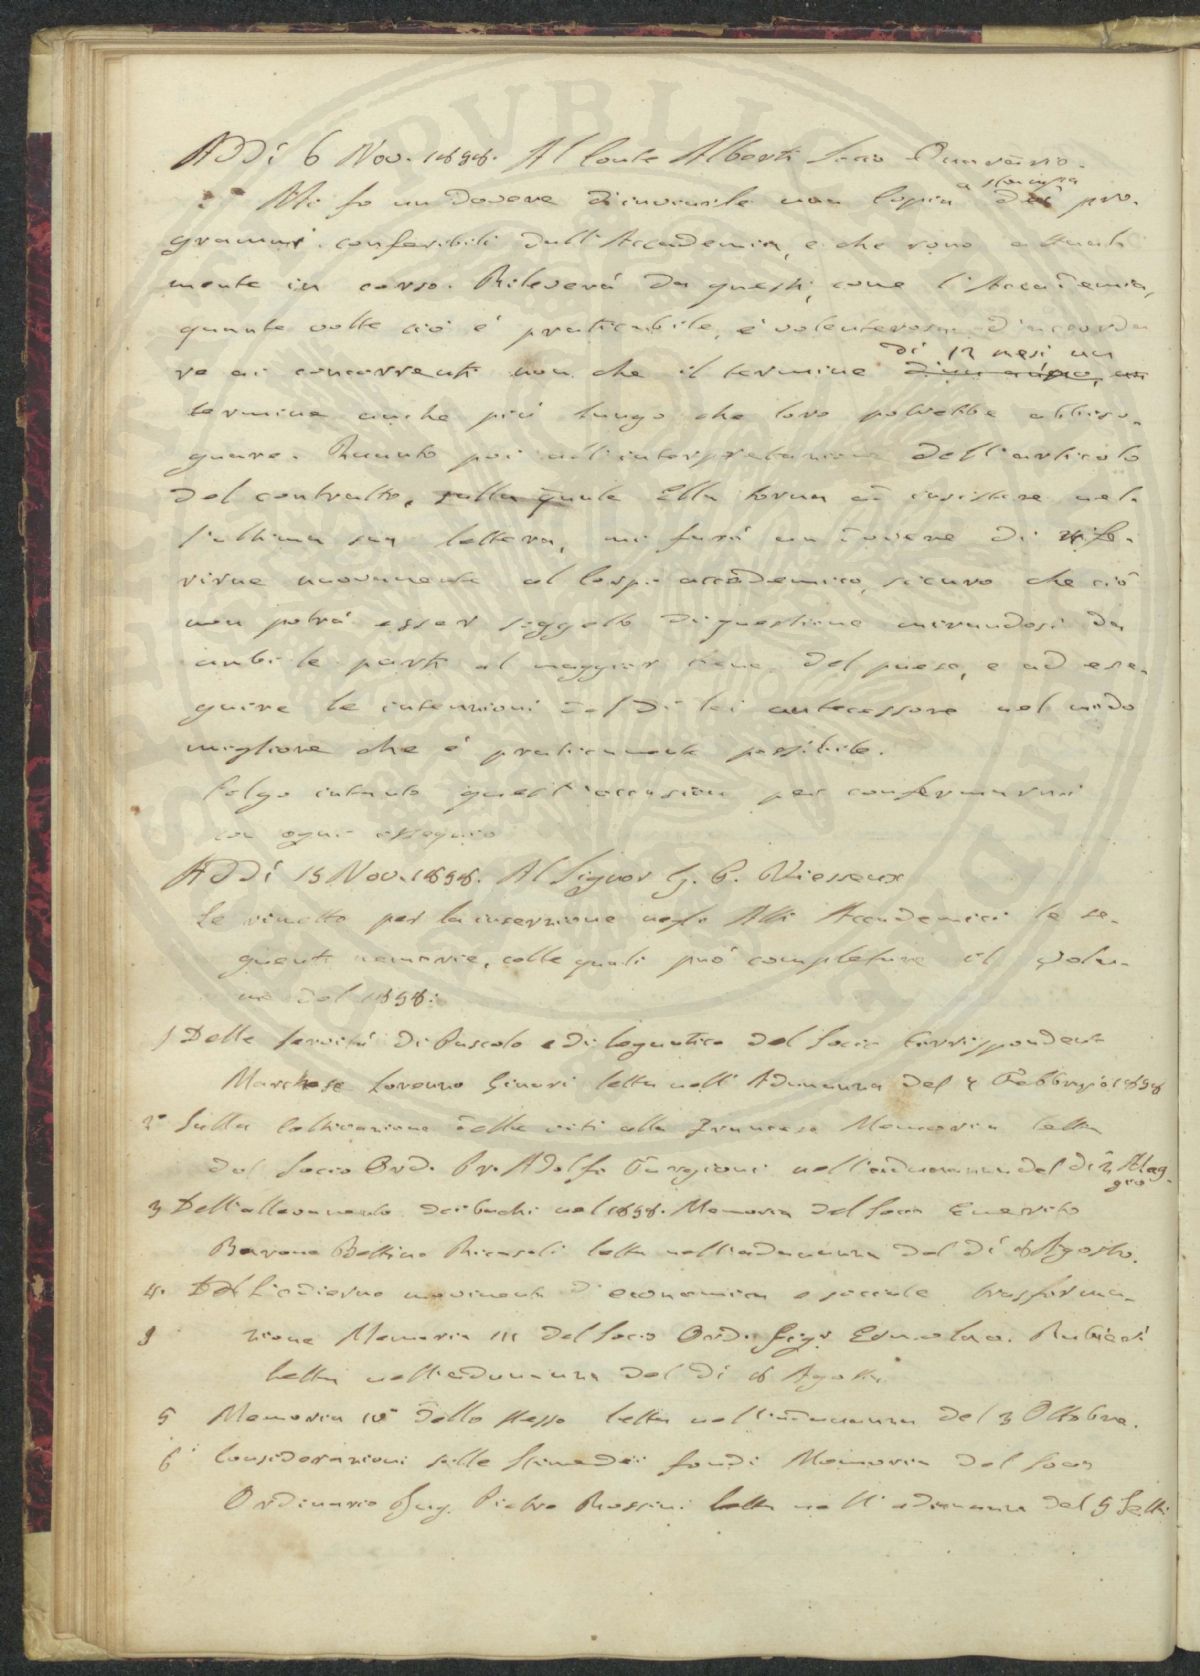 Addì 6 Nov. 1858. Al Conte Alberti Socio Onorario.
Mi fo un dovere d'inviarle una Copia a stampa dei pro-
grammi conferibili dall'Accademia, e che sono attual-
mente in corso. Rileverà da questi, come l'Accademia,
quante volte ciò è praticabile, è volenterosa d'accorda
re ai concorrenti non che il termine di 12 mesi un
termine anche più lungo che loro potrebbe abbiso-
gnare. Quanto poi all'interpretazione dell'articolo
del contratto, sulla quale Ella torna ad insistere nel-
l'ultima sua lettera, mi farò un dovere di rife-
rirne nuovamente al Corpo accademico, sicuro che ciò
non potrà esser soggetto di questione mirandosi da
ambi le parti al maggior bene del paese, e ad ese-
guire le intenzioni del di lei antecessore nel modo
migliore che è praticamente possibile.
Colgo intanto quest'occasione per confermarmi
con ogni ossequio
Addì 15 Nov. 1858. Al Signor G. P. Vieusseux
Le rimetto per la inserzione negli Atti Accademici le se-
guenti memorie, colle quali può completare il Volu-
me del 1858:
1 Delle servitù di Pascolo e di legnatico del Socio Corrispondente
Marchese Lorenzo Ginori letta nell'Adunanza del 7 Febbrajo 1858
2° Sulla Coltivazione delle viti alla francese Memoria letta
dal Socio Ord. Pr. Adolfo Targioni nell'adunanza del dì 2 Mag-
gio
3 Dell'allevamento dei bachi nel 1858. Memoria del Socio Emerito
Barone Bettino Ricasoli letta nell'adunanza del dì 8 Agosto.
4. Dell'odierno movimento di economica e sociale trasforma-
zione Memoria III del Socio Ord. Sigr. Ermolao Rubieri
letta nell'adunanza del dì 8 Agosto
5 Memoria IV dello stesso letta nell'adunanza del 3 Ottobre.
6 Considerazioni sulle Stime dei fondi Memoria del Socio
Ordinario Ing. Pietro Rossini letta nell'adunanza del 5 Sett: